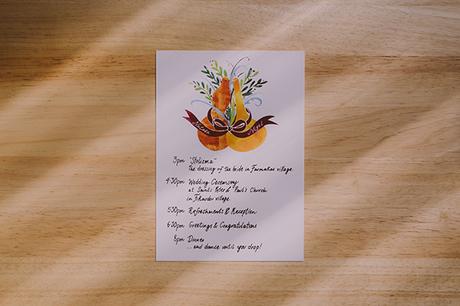 3pm "Stolisma"
the dressing of the bride in Farmakas village.
4:30pm Wedding Ceremony
at Saint's Peter & Paul's Church
in Pikardos village.
5:30pm Refreshments & Reception
6:30pm Greetings & Congratulations
8pm Dinner
... and dance until you drop!